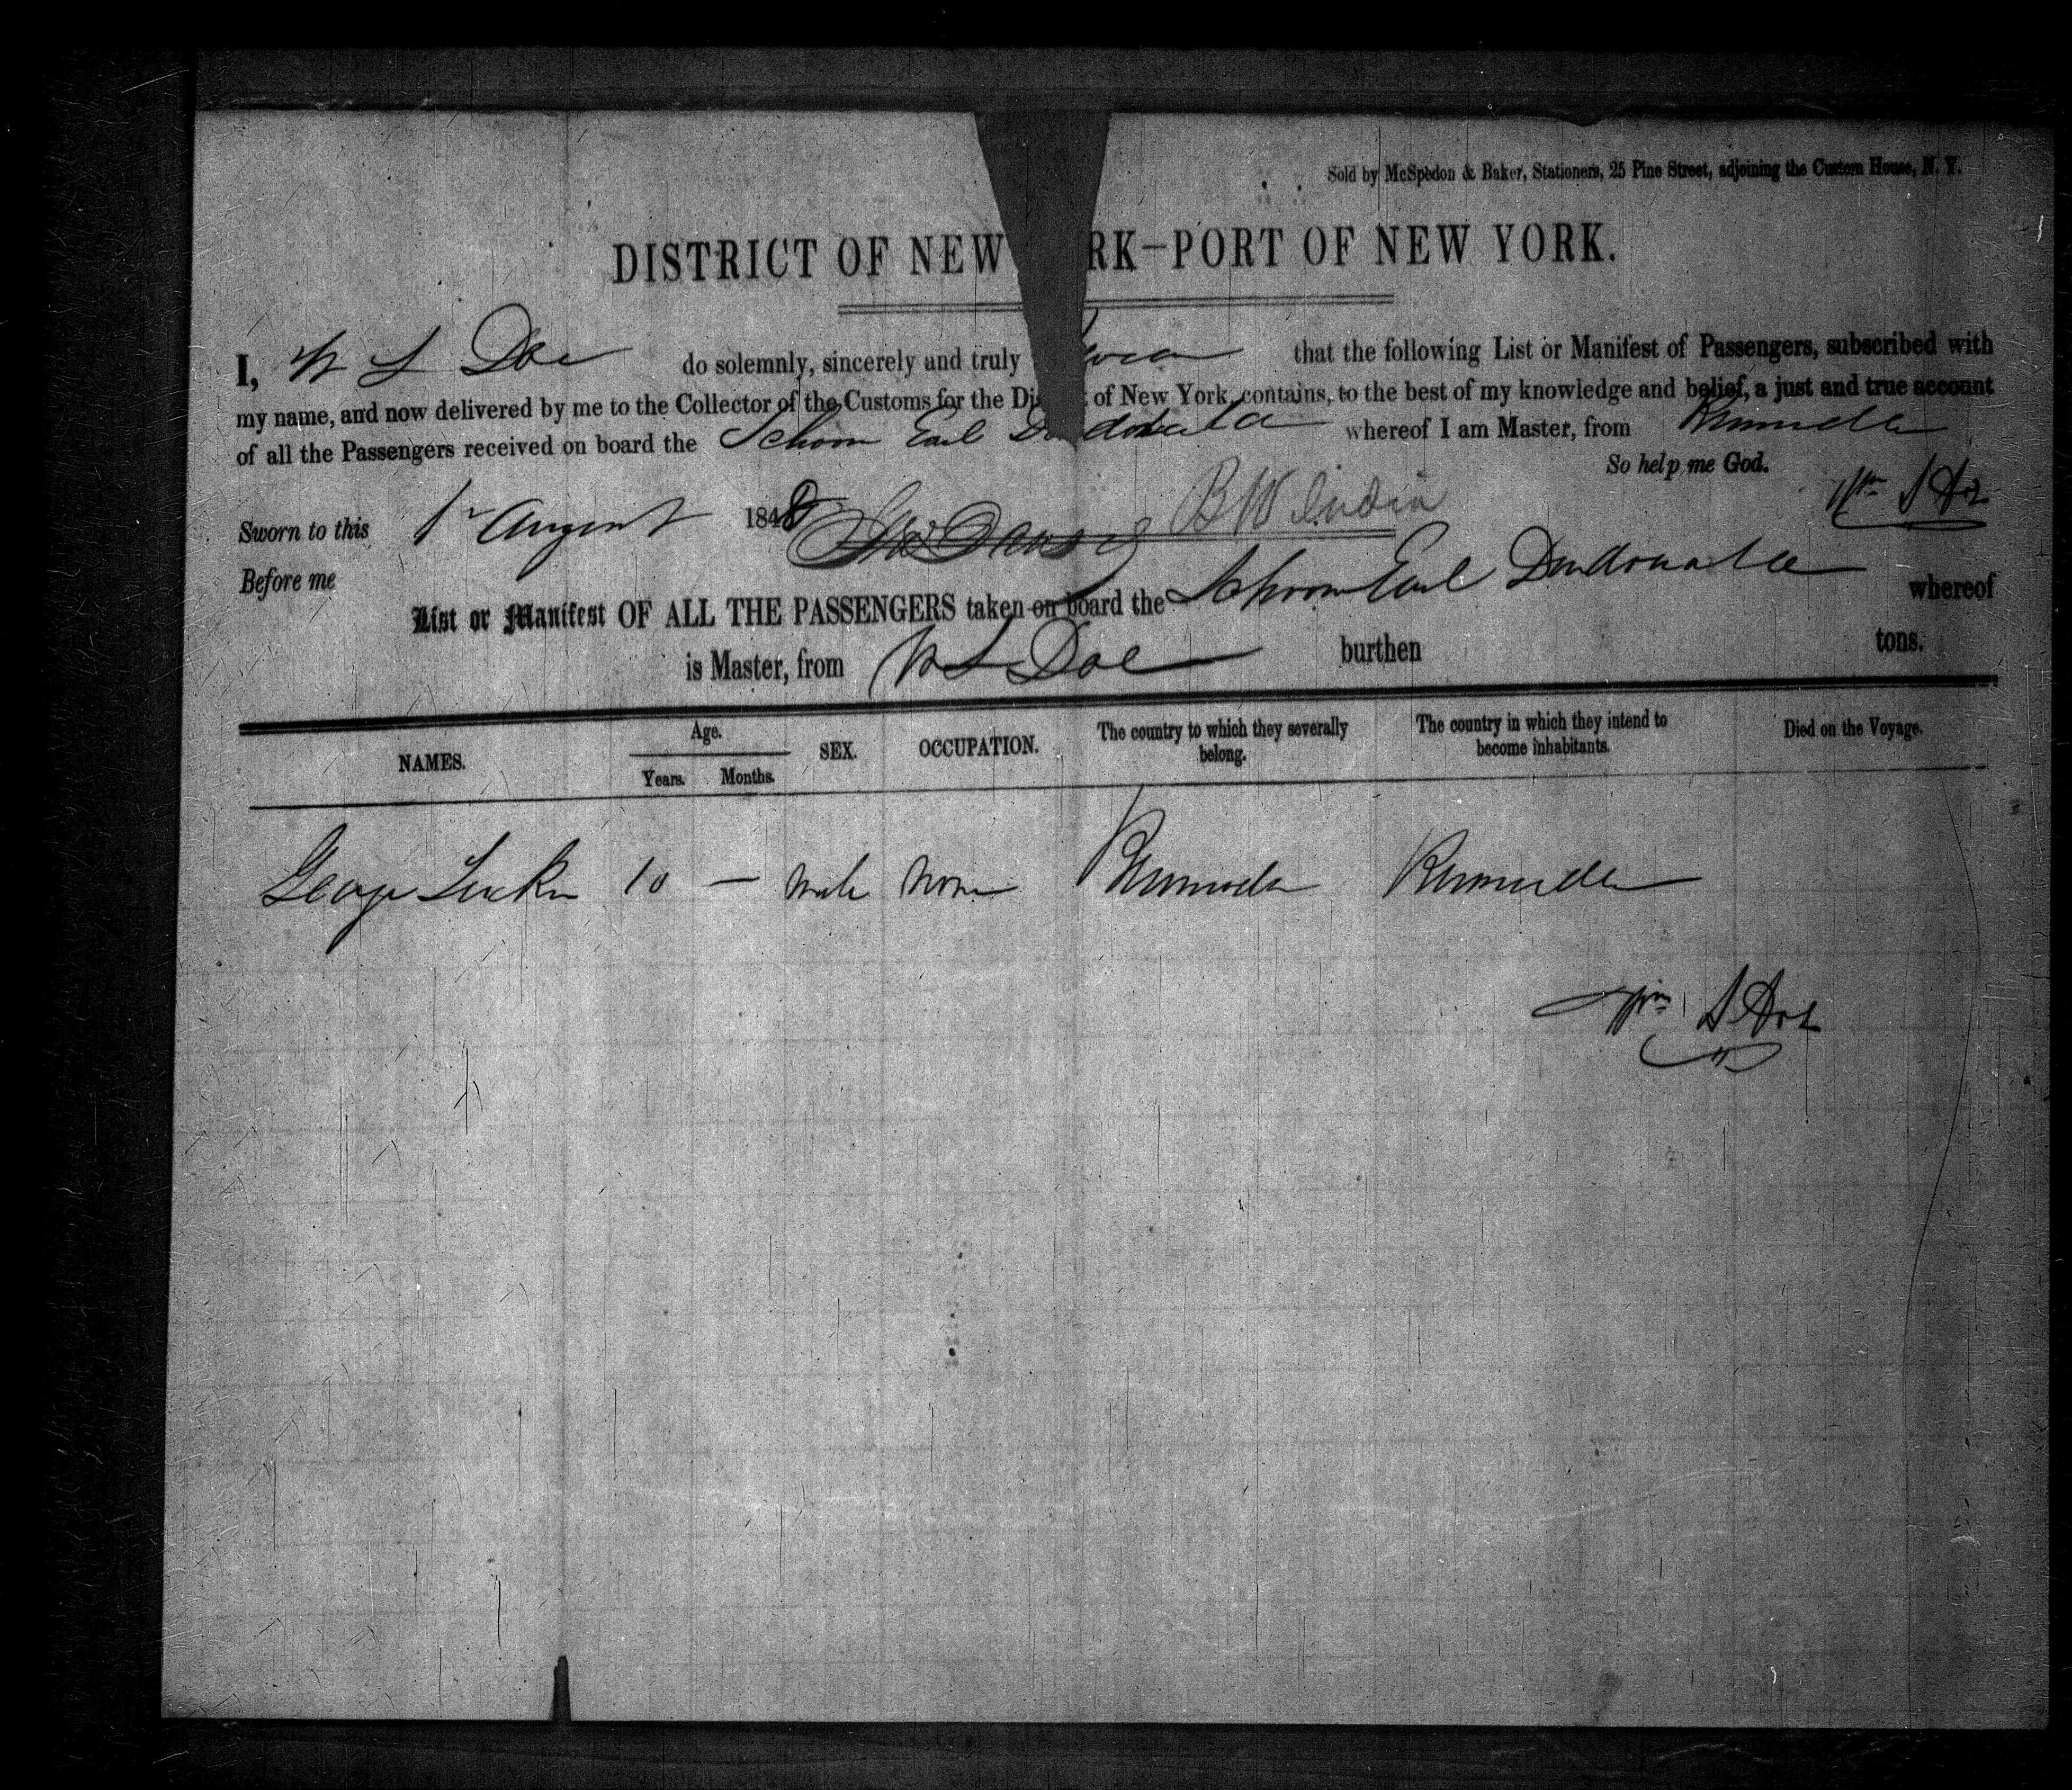 Sold by McSpedon & Baker, Stationers, 25 Pine Street, adjoining the Custom House, N. Y.
DISTRICT OF NEW RK—PORT OF NEW YORK.
I, W S Doe do solemnly, sincerely and truly that the following List or Manifest of Passengers, subscribed with
my name, and now delivered by me to the Collector of the Customs for the Di of New York, contains, to the best of my knowledge and belief, a just and true account
of all the Passengers received on board the Schoon Earl whereof I am Master, from Bermuda
So help me God.
Wm S Doe
Sworn to this 1st August 1848 B W India
Before me
List or Manifest OF ALL THE PASSENGERS taken on board the Schoon Earl Dundonald whereof
is Master, from W S Doe burthen tons.
NAMES. Age. Years. Months. SEX. OCCUPATION. The country to which they severally belong. The country in which they intend to become inhabitants. Died on the Voyage.
George Tucker 10 — male none Bermuda Bermuda
Wm S Doe